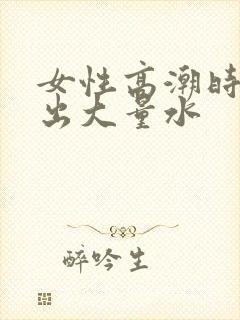 女性高潮时
出大量水
醉吟生